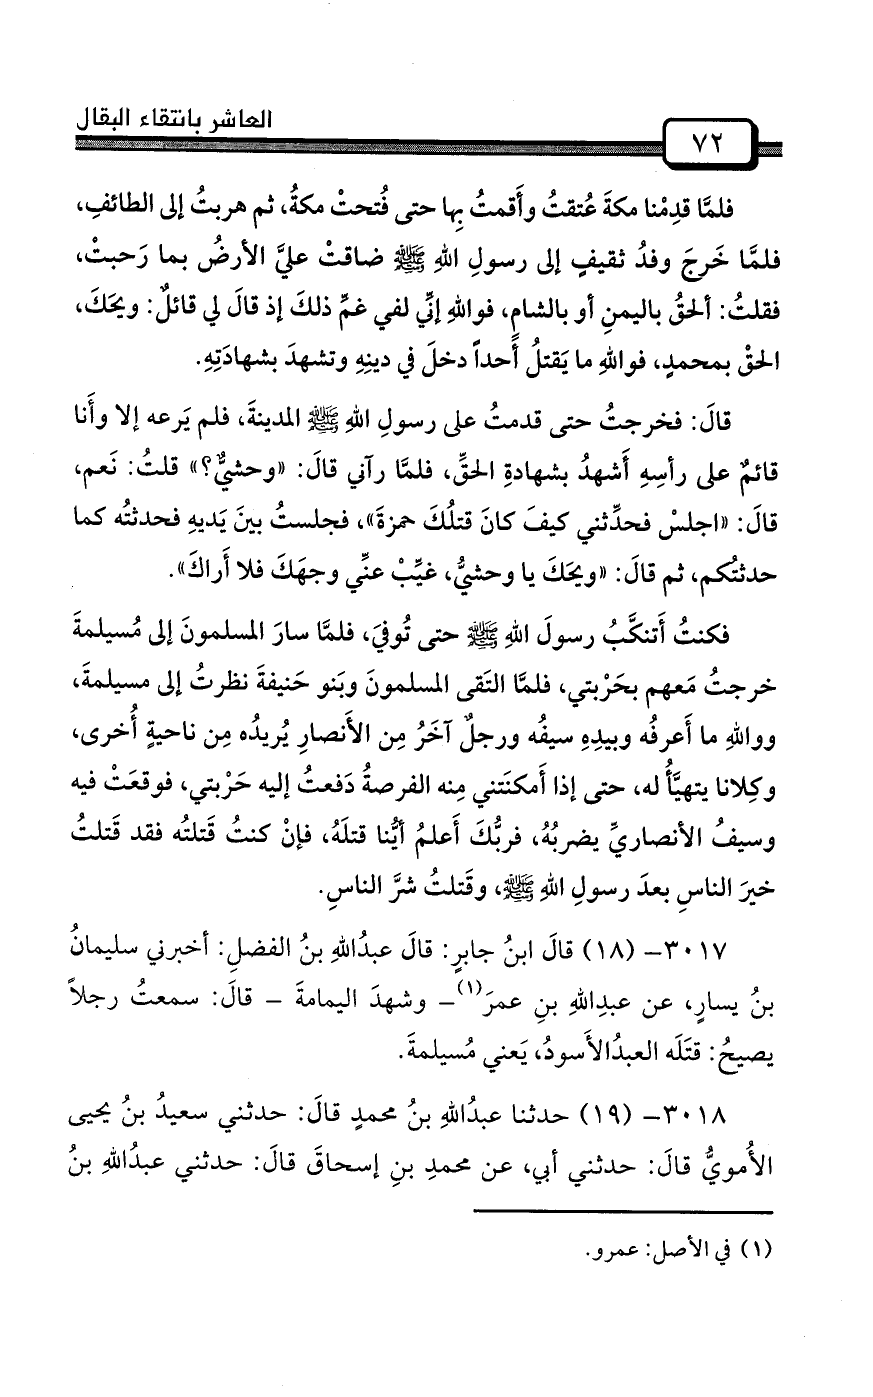 العاشر بانتقاء البقال
٧٢
فلمَّا قدِمْنا مكةَ عُتقتُ وأَقمتُ بِها حتى فُتحتْ مكةُ، ثم هربتُ إلى الطائفِ،
فلمَّا خَرجَ وفدُ ثقيفٍ إلى رسولِ اللهِ ﷺ ضاقتْ عليَّ الأرضُ بما رَحبتْ،
فقلتُ: ألحقُ باليمنِ أو بالشامِ، فواللهِ إنِّي لفي غمِّ ذلكَ إذ قالَ لي قائلٌ: ويحَكَ،
الحقْ بمحمدٍ، فواللهِ ما يَقتلُ أَحداً دخلَ في دينِهِ وتشهدَ بشهادَتِهِ.
قالَ: فخرجتُ حتى قدمتُ على رسولِ اللهِ ﷺ المدينةَ، فلم يَرعه إلا وأَنا
قائمٌ على رأسِهِ أَشهدُ بشهادةِ الحقِّ، فلمَّا رآني قالَ: «وحشيٌّ؟» قلتُ: نَعم،
قالَ: «اجلسْ فحدِّثني كيفَ كانَ قتلُكَ حمزةَ»، فجلستُ بينَ يَديهِ فحدثتُه كما
حدثتُكم، ثم قالَ: «ويحَكَ يا وحشيُّ، غيِّبْ عنِّي وجهَكَ فلا أَراكَ».
فكنتُ أَتنكَّبُ رسولَ اللهِ ﷺ حتى تُوفيَ، فلمَّا سارَ المسلمونَ إلى مُسيلمةَ
خرجتُ مَعهم بحَرْبتي، فلمَّا التَقى المسلمونَ وبَنو حَنيفةَ نظرتُ إلى مسيلمةَ،
وواللهِ ما أَعرفُه وبيدِهِ سيفُه ورجلٌ آخَرُ مِن الأَنصارِ يُريدُه مِن ناحيةٍ أُخرى،
وكِلانا يتهيَّأُ له، حتى إذا أَمكنَتني مِنه الفرصةُ دَفعتُ إليه حَرْبتي، فوقعَتْ فيه
وسيفُ الأنصاريِّ يضربُهُ، فربُّكَ أَعلمُ أيُّنا قتلَهُ، فإنْ كنتُ قَتلتُه فقد قَتلتُ
خيرَ الناسِ بعدَ رسولِ اللهِ ﷺ، وقَتلتُ شرَّ الناسِ.
٣٠١٧- (١٨) قالَ ابنُ جابرٍ: قالَ عبدُاللهِ بنُ الفضلِ: أخبرني سليمانُ
بنُ يسارٍ، عن عبدِاللهِ بنِ عمرَ(١)- وشهدَ اليمامةَ - قالَ: سمعتُ رجلاً
يصيحُ: قتلَه العبدُالأَسودُ، يَعني مُسيلمةَ.
٣٠١٨- (١٩) حدثنا عبدُاللهِ بنُ محمدٍ قالَ: حدثني سعيدُ بنُ يحيى
الأُمويُّ قالَ: حدثني أبي، عن محمدِ بنِ إسحاقَ قالَ: حدثني عبدُاللهِ بنُ
(١) في الأصل: عمرو.